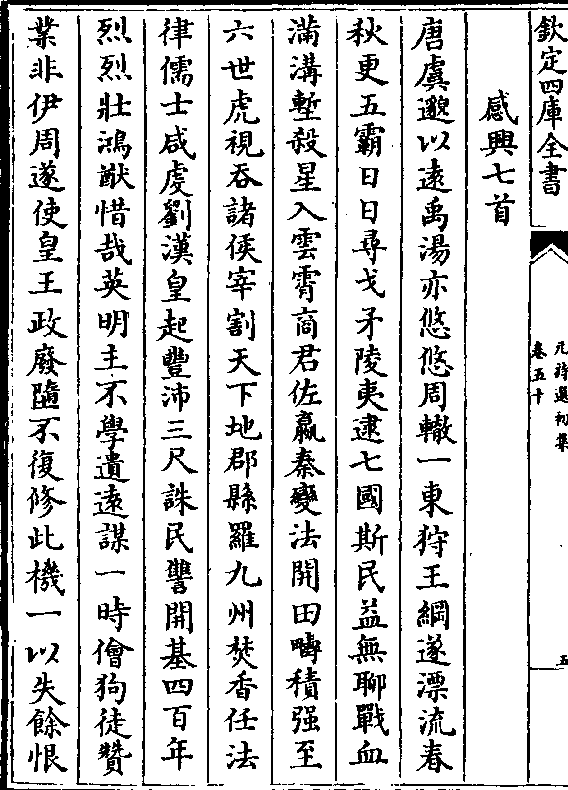 欽定四庫全書
元詩選初集
卷五十
五
感興七首
唐虞邈以遠禹湯亦悠悠周轍一東狩王綱遂漂流春
秋更五霸日日尋戈矛陵夷逮七國斯民益無聊戰血
滿溝塹殺星入雲霄商君佐嬴秦變法開田疇積强至
六世虎視吞諸侯宰割天下地郡縣羅九州焚香任法
律儒士咸虔劉漢皇起豐沛三尺誅民讐開基四百年
烈烈壯鴻猷惜哉英明主不學遺遠謀一時儈狗徒贊
業非伊周遂使皇王政廢隳不復修此機一以失餘恨